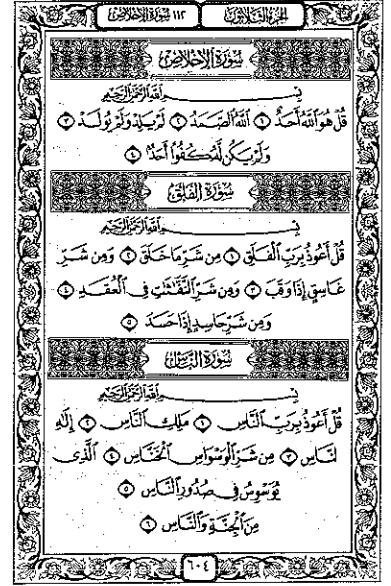 الجزء الثلاثون ١١٢ سورة الإخلاص
سورة الإخلاص
بسم الله الرحمن الرحيم
قُلْ هُوَ اللَّهُ أَحَدٌ ١ اللَّهُ الصَّمَدُ ٢ لَمْ يَلِدْ وَلَمْ يُولَدْ ٣
وَلَمْ يَكُن لَّهُ كُفُوًا أَحَدٌ ٤
سورة الفلق
بسم الله الرحمن الرحيم
قُلْ أَعُوذُ بِرَبِّ الْفَلَقِ ١ مِن شَرِّ مَا خَلَقَ ٢ وَمِن شَرِّ
غَاسِقٍ إِذَا وَقَبَ ٣ وَمِن شَرِّ النَّفَّٰثَٰتِ فِي الْعُقَدِ ٤
وَمِن شَرِّ حَاسِدٍ إِذَا حَسَدَ ٥
سورة الناس
بسم الله الرحمن الرحيم
قُلْ أَعُوذُ بِرَبِّ النَّاسِ ١ مَلِكِ النَّاسِ ٢ إِلَٰهِ
النَّاسِ ٣ مِن شَرِّ الْوَسْوَاسِ الْخَنَّاسِ ٤ الَّذِي
يُوَسْوِسُ فِي صُدُورِ النَّاسِ ٥
مِنَ الْجِنَّةِ وَالنَّاسِ ٦
٦٠٤